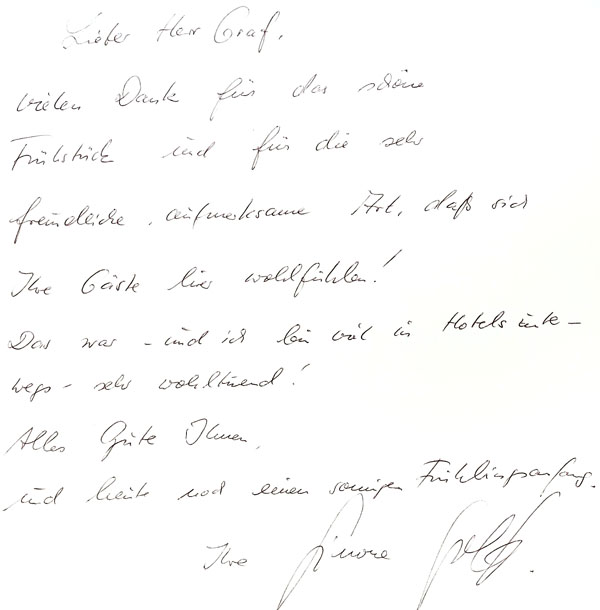 Lieber Herr Graf,
vielen Dank für das schöne
Frühstück und für die sehr
freundliche, aufmerksame Art, daß sich
Ihre Gäste hier wohlfühlen!
Das war - und ich bin viel in Hotels unter-
wegs - sehr wohltuend!
Alles Gute Ihnen,
und heute noch einen sonnigen Frühlingsanfang.
Ihre Simone